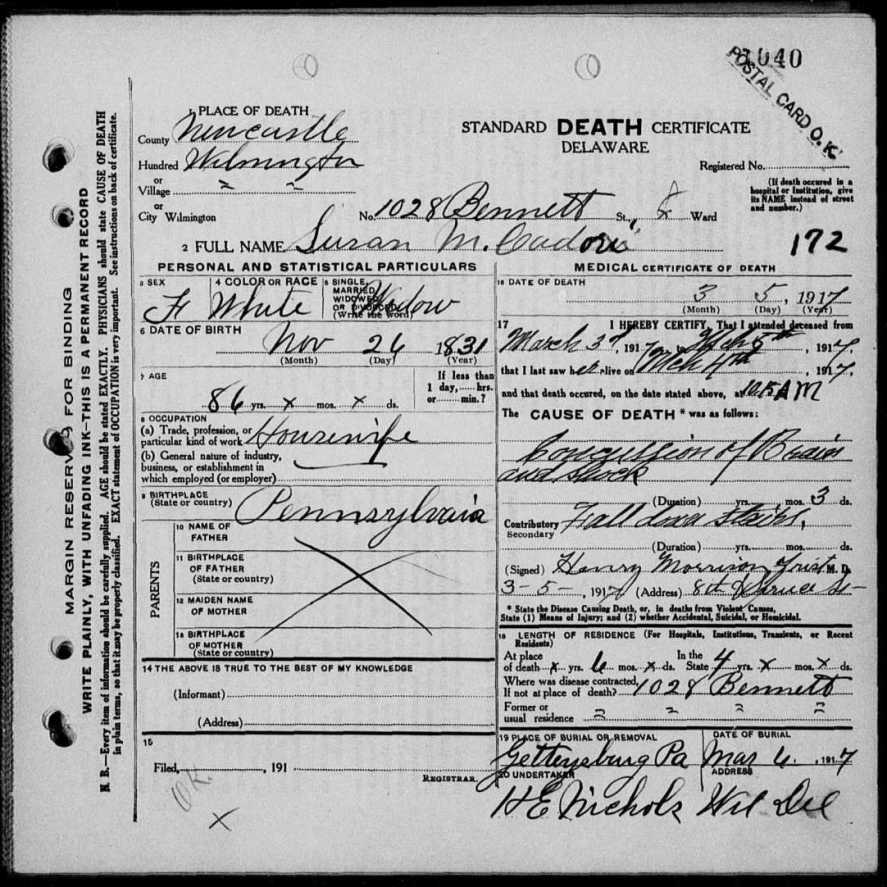 1040
POSTAL CARD O.K.
MARGIN RESERVED FOR BINDING
WRITE PLAINLY, WITH UNFADING INK—THIS IS A PERMANENT RECORD
N. B.—Every item of information should be carefully supplied. AGE should be stated EXACTLY. PHYSICIANS should state CAUSE OF DEATH
in plain terms, so that it may be properly classified. EXACT statement of OCCUPATION is very important. See instructions on back of certificate.
1 PLACE OF DEATH
County Newcastle
Hundred Wilmington
or
Village " "
or
City Wilmington
STANDARD DEATH CERTIFICATE
DELAWARE
Registered No.
(If death occured in a
hospital or Institution, give
its NAME instead of street
and number.)
No. 1028 Bennett St., 8 Ward
2 FULL NAME Susan M. Cadoris
172
PERSONAL AND STATISTICAL PARTICULARS
3 SEX F
4 COLOR OR RACE White
5 SINGLE,
MARRIED,
WIDOWED,
OR DIVORCED
(Write the word) Widow
6 DATE OF BIRTH
Nov 26 1831
(Month) (Day) (Year)
7 AGE
86 yrs. x mos. x ds.
If less than
1 day, hrs.
or min.?
8 OCCUPATION
(a) Trade, profession, or
particular kind of work Housewife
(b) General nature of industry,
business, or establishment in
which employed (or employer)
9 BIRTHPLACE
(State or country) Pennsylvaia
PARENTS
10 NAME OF
FATHER
11 BIRTHPLACE
OF FATHER
(State or country)
12 MAIDEN NAME
OF MOTHER
13 BIRTHPLACE
OF MOTHER
(State or country)
14 THE ABOVE IS TRUE TO THE BEST OF MY KNOWLEDGE
(Informant)
(Address)
15
Filed, , 191
REGISTRAR.
O.K.
X
MEDICAL CERTIFICATE OF DEATH
16 DATE OF DEATH
3 5, 1917
(Month) (Day) (Year)
17 I HEREBY CERTIFY, That I attended deceased from
March 3d, 1917, to Mch 5th, 1917,
that I last saw her alive on Mch 4th, 1917,
and that death occured, on the date stated above, at AM
The CAUSE OF DEATH * was as follows:
Concussion of Brain
and Shock
(Duration) yrs. mos. 3 ds.
Contributory Fall down stairs,
Secondary
(Duration) yrs. mos. ds.
(Signed) Henry Morrison M. D.
3-5-, 1917 (Address) 8th
* State the Disease Causing Death, or, in deaths from Violent Causes,
State (1) Means of Injury; and (2) whether Accidental, Suicidal, or Homicidal.
18 LENGTH OF RESIDENCE (For Hospitals, Institutions, Transients, or Recent
Residents)
At place
of death x yrs. 6 mos. x ds.
In the
State 4 yrs. x mos. x ds.
Where was disease contracted,
If not at place of death? 1028 Bennett
Former or
usual residence " " " "
19 PLACE OF BURIAL OR REMOVAL
Gettysburg Pa
DATE OF BURIAL
Mar 6, 1917
20 UNDERTAKER
H E Nichols
ADDRESS
Wil Del